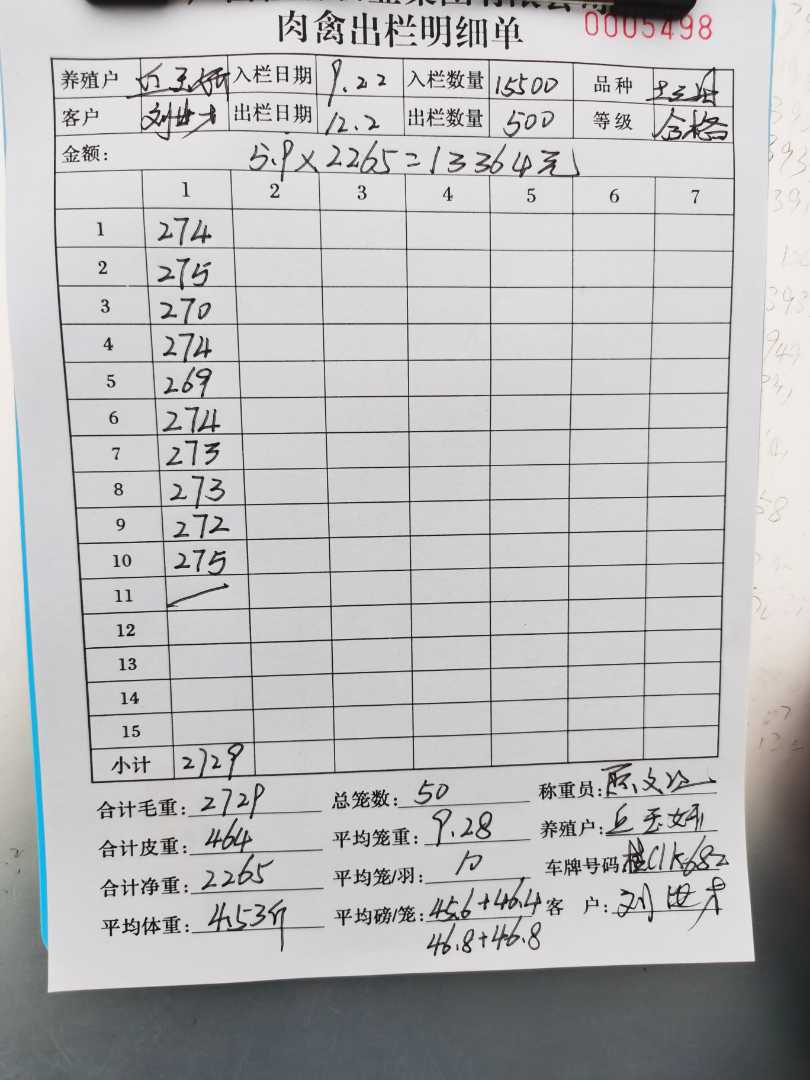 肉禽出栏明细单 0005498
养殖户 丘玉妍 入栏日期 9.22 入栏数量 15500 品种
客户 刘世才 出栏日期 12.2 出栏数量 500 等级 合格
金额: 5.9×2265=13364元
1 2 3 4 5 6 7
1 274
2 275
3 270
4 274
5 269
6 274
7 273
8 273
9 272
10 275
11
12
13
14
15
小计 2729
合计毛重: 2729 总笼数: 50 称重员:
合计皮重: 464 平均笼重: 9.28 养殖户: 丘玉妍
合计净重: 2265 平均笼/羽: 10 车牌号码 桂C1K682
平均体重: 4.53斤 平均磅/笼: 45.6+46.4 客 户: 刘世才
46.8+46.8